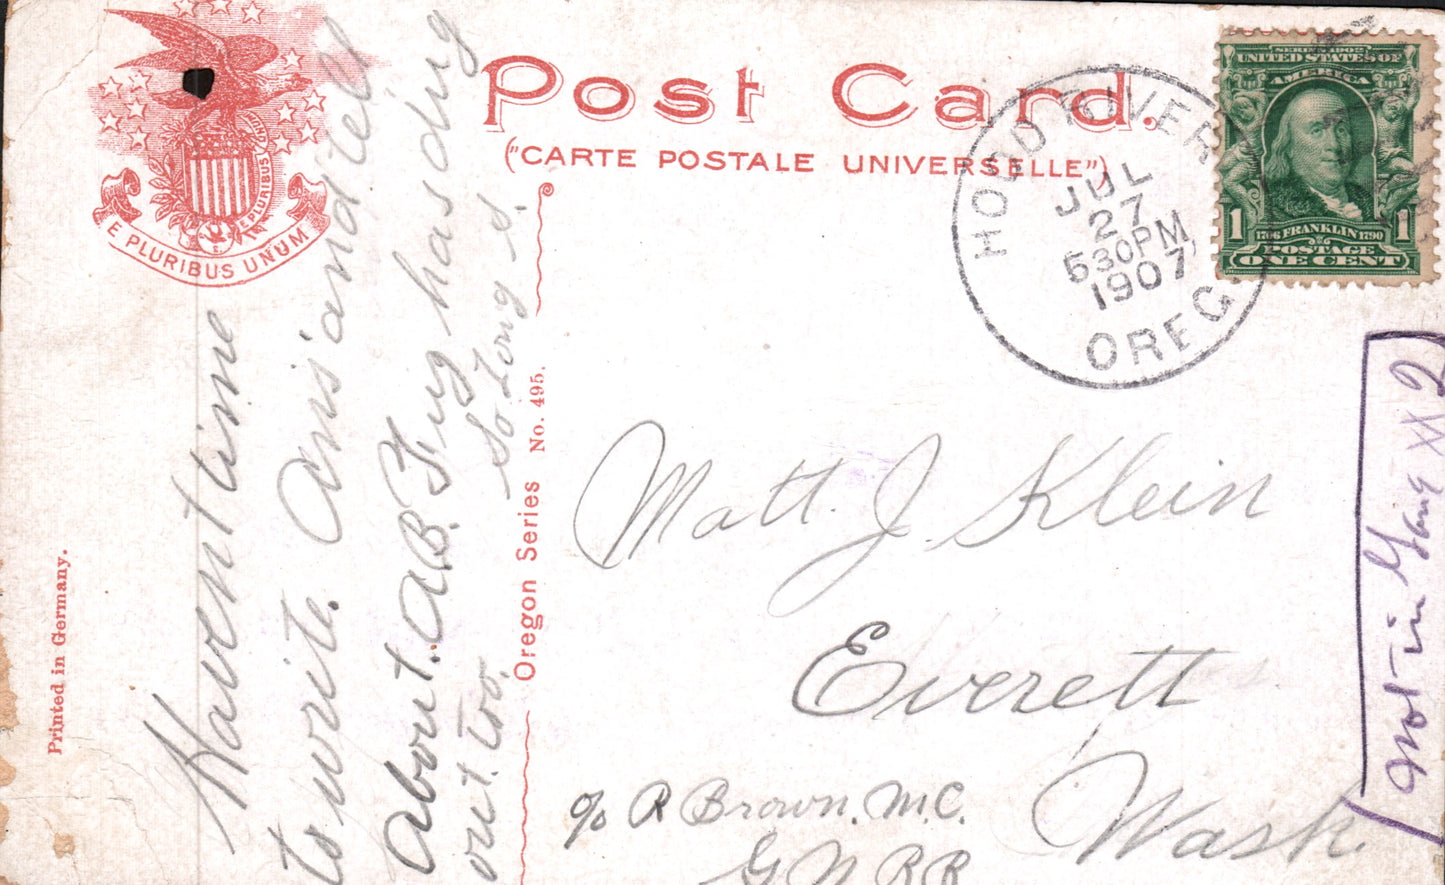 Post Card.
("CARTE POSTALE UNIVERSELLE")
E PLURIBUS UNUM
E PLURIBUS
HOOD RIVER
JUL
27
530PM
1907
OREG.
SERIES 1902
UNITED STATES OF
AMERICA
1 1
1706 FRANKLIN 1790
POSTAGE
ONE CENT
Printed in Germany.
Oregon Series No. 495.
Havent time
to write. Ans and tell
about. A.B. Tug has ding
out too. So Long s.
Matt. J. Klein
Everett
Wash.
c/o R Brown. M.C.
G N R R
Not in Gang XX 2